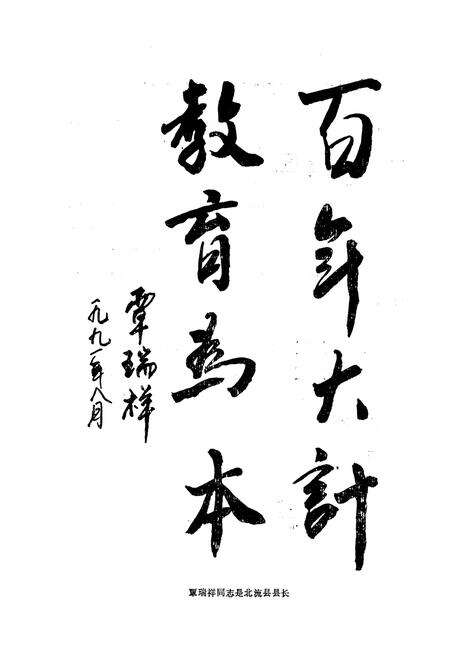 百年大計
教育为本
覃瑞祥
一九九一年八月
覃瑞祥同志是北流县县长